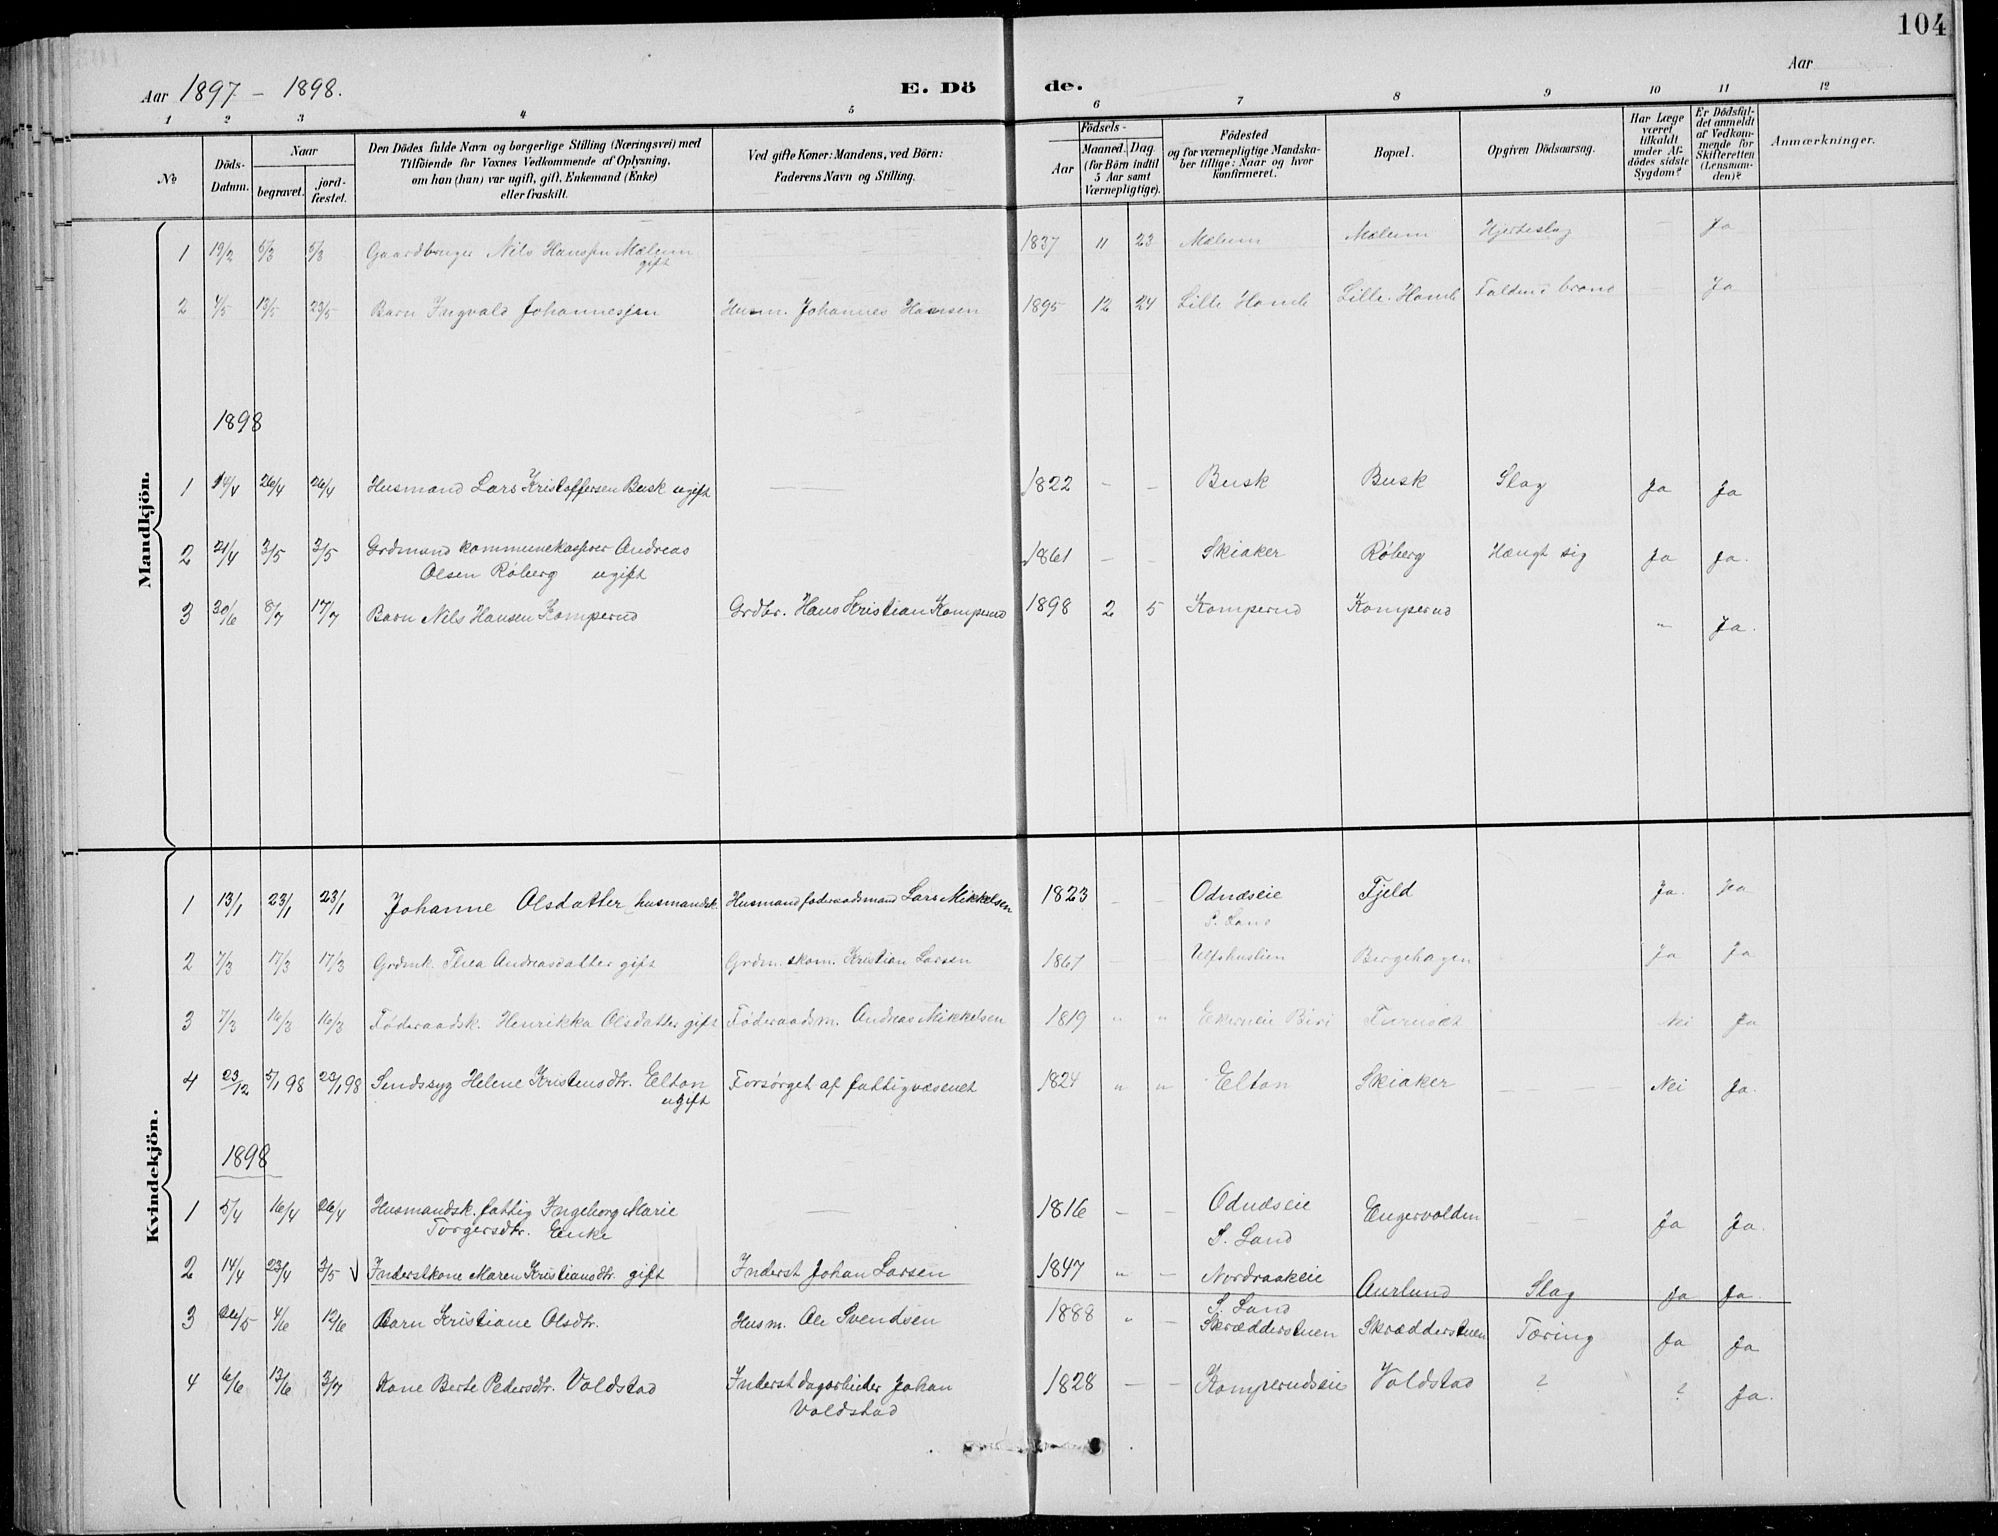 104
Aar 1897 - 1898. E. Dö de. Aar
1 2 3 4 5 6 7 8 9 10 11 12
No
Döds-Datum.
Naar
begravet.
jord-fæstet.
Den Dödes fulde Navn og borgerlige Stilling (Næringsvei) med
Tilföiende for Voxnes Vedkommende af Oplysning,
om hon (han) var ugift, gift, Enkemand (Enke)
eller fraskilt.
Ved gifte Koner: Mandens, ved Börn:
Faderens Navn og Stilling.
Födsels-
Aar
Maaned. Dag
(for Börn indtil
5 Aar samt
Værnepligtige).
Födested
og for værnepligtige Mandska-
ber tillige: Naar og hvor
konfirmeret.
Bopæl.
Opgiven Dödsaarsag.
Har Læge
været
tilkaldt
under Af-
dödes sidste
Sygdom?
Er Dödsfal-
det anmeldt
af Vedkom-
mende for
Skifteretten
(Lensman-
den)?
Anmærkninger.
Mandkjön.
1 19/2 5/3 5/3 Gaardbruger Nils Hanssen Mælum 1837 11 23 Mælum Mælum Hjerteslag — Ja
gift
2 4/5 13/5 23/5 Barn Ingvald Johannessen Husm. Johannes Hansen 1895 12 24 Lille Hamle Lille-Hamle brand — Ja
1898
1 14/4 26/4 26/4 Husmand Lars Kristoffersen Busk ugift — 1822 — — Busk Busk Slag Ja Ja
2 21/4 3/5 3/5 Grdmand kommunekasserer Andreas 1861 — — Skiaker Røberg Hængt sig Ja Ja.
Olsen Røberg ugift
3 30/6 8/7 17/7 Barn Nils Hansen Kompernd Grdbr. Hans Kristian Kompernd 1898 2 5 Kompernd Kompernd " Ja.
Kvindekjön.
1 13/1 23/1 23/1 Johanne Olsdatter husmandsk. Husmand føderaadsmand Lars Mikkelsen 1823 — — Odnæseie Fjeld Ja. Ja
S. Land
2 7/3 17/3 17/3 Grdmk. Thea Andreasdatter gift Grdm. skom. Kristian Larsen 1867 — Ulfshuslien Bergehagen Ja Ja
3 7/3 16/3 16/3 Føderaadsk. Henrikka Olsdatter gift Føderaadsm. Andreas Mikkelsen 1819 " " Ekerneie Biri Furuset Nei Ja
4 23/12 5/1 98 23/1 98 Sindssyg Helene Kristensdtr. Elton Forsørget af fattigvæsenet 1824 " " Elton Skiaker — Nei Ja.
ugift
1898
1 5/4 16/4 26/4 Husmandsk. fattig Ingeborg Marie — 1816 — — Odnæseie Engervolden — — Ja Ja.
Torgersdtr. Enke S. Land
2 14/4 23/4 3/5 V Inderstkone Maren Kristiansdtr. gift Inderst Johan Larsen 1847 " — Nordraakeie Aurlund Slag Ja Ja.
S. Land
3 26/5 4/6 12/6 Barn Kristiane Olsdtr. Husm. Ole Svendsen 1888 " — Skrædderstuen Skrædderstuen Tæring Ja Ja
4 6/6 13/6 3/7 Kone Berte Pedersdtr. Voldstad Inderst dagarbeider Johan 1828 — — Komperudseie Voldstad ? ? Ja.
Voldstad